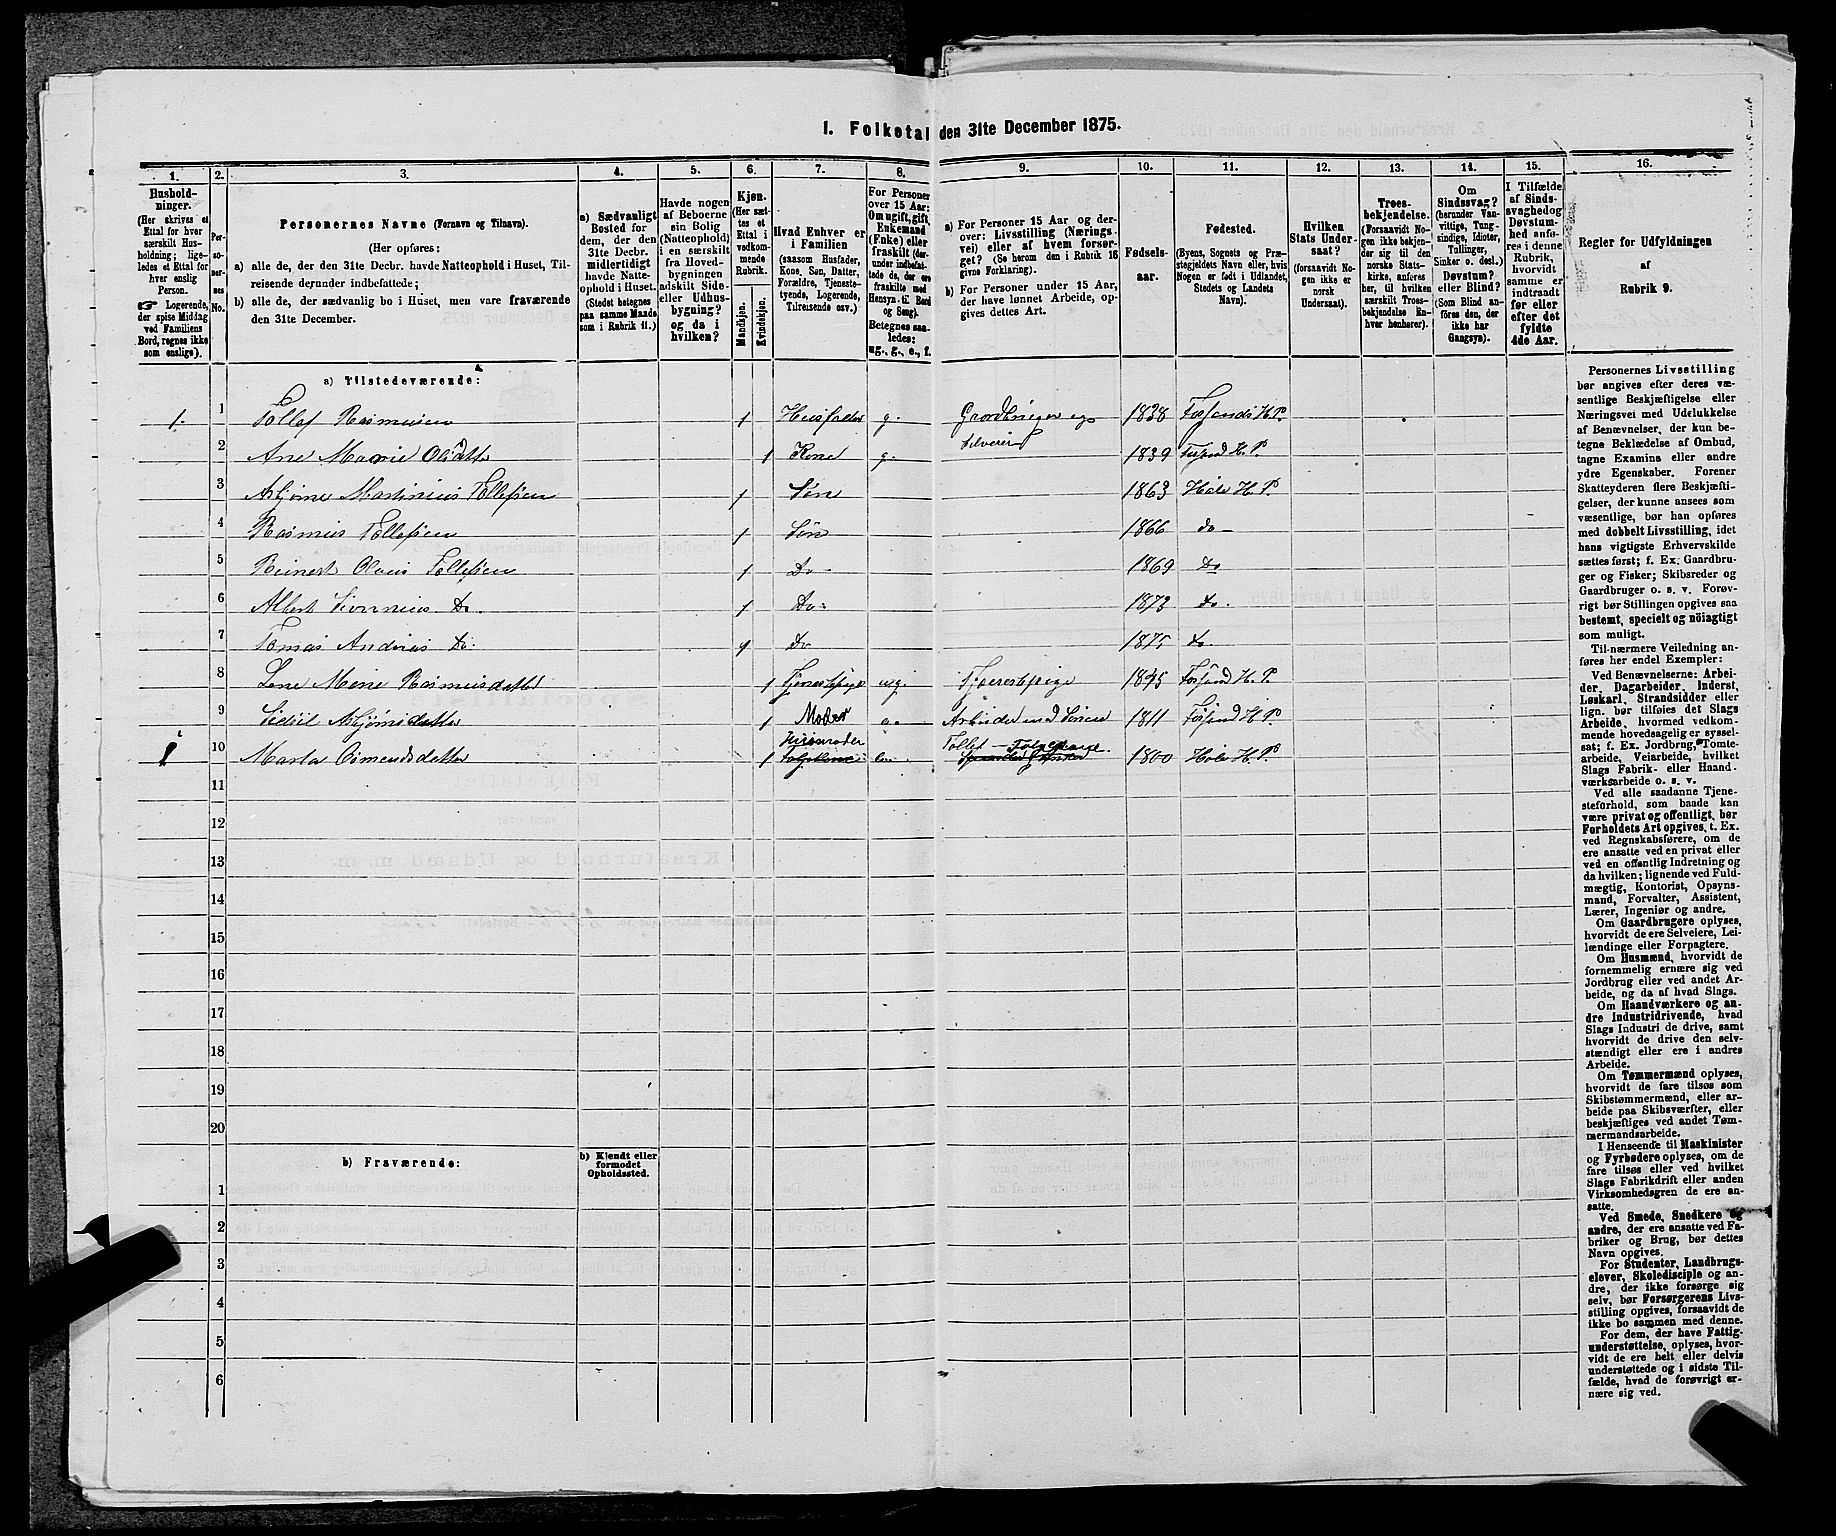 1. Folketal den 31te December 1875.
1. 2. 3. 4. 5. 6. 7. 8. 9. 10. 11. 12. 13. 14. 15. 16.
Husholdninger.
(Her skrives et
Ettal for hver
særskilt Husholdning;
ligeledes et Ettal for
hver enslig
Person.
☞ Logerende,
der spise Middag
ved Familiens
Bord, regnes ikke
som enslige).
Personernes No.
Personernes Navne (Fornavn og Tilnavn).
(Her opføres:
a) alle de, der den 31te Decbr. havde Natteophold i Huset, Tilreisende derunder indbefattede;
b) alle de, der sædvanlig bo i Huset, men vare fraværende
den 31te December.
a) Sædvanligt
Bosted for
dem, der den
31te Decbr.
midlertidigt
havde Natteophold
i Huset.
(Stedet betegnes
paa samme Maade
som i Rubrik 11.)
Havde nogen
af Beboerne
sin Bolig
(Natteophold)
i en særskilt
fra Hovedbygningen
adskilt Side-
eller Udhusbygning?
og da i
hvilken?
Kjøn.
(Her sættes
et
Ettal i
vedkommende
Rubrik.
Mandkjøn.
Kvindekjøn.
Hvad Enhver er
i Familien
(saasom Husfader,
Kone, Søn, Datter,
Forældre, Tjenestetyende,
Logerende,
Tilreisende osv.)
For Personer
over 15 Aar:
Om ugift, gift,
Enkemand
(Enke) eller
fraskilt (derunder
indbefattede
de, der ere
fraskilte med
Hensyn til Bord
og Seng).
Betegnes saaledes:
ug., g., e., f.
a) For Personer 15 Aar og derover:
Livsstilling (Næringsvei)
eller af hvem forsørget?
(Se herom den i Rubrik 16
givne Forklaring).
b) For Personer under 15 Aar,
der have lønnet Arbeide, opgives
dettes Art.
Fødselsaar.
Fødested.
(Byens, Sognets og Præstegjeldets
Navn eller, hvis
Nogen er født i Udlandet,
Stedets og Landets
Navn).
Hvilken
Stats Undersaat?
(forsaavidt Nogen
ikke er
norsk
Undersaat).
Troesbekjendelse.
(Forsaavidt Nogen
ikke bekjender
sig til den
norske Statskirke,
anføres
her, til hvilken
særskilt Troesbekjendelse
Enhver
henhører).
Om
Sindssvag?
(herunder Vanvittige,
Tungsindige,
Idioter,
Tullinger,
Sinker o. desl.)
Døvstum?
eller Blind?
(Som Blind anføres
den, der
ikke har
Gangsyn).
I Tilfælde
af Sindssvaghed
og
Døvstumhed
anføres
i denne
Rubrik,
hvorvidt
samme er
indtraadt
før eller
efter det
fyldte
4de Aar.
Regler for Udfyldningen
af
Rubrik 9.
a) Tilstedeværende:
1. 1 Tollef Rasmusen 1 Husfader g. Gaardbruger og Selveier 1838 Fossands H.P.
2 Ane Marie Olsdatter 1 Kone g. 1839 Fossand H.P.
3 Asbjørne Martinius Tollefsen 1 Søn 1863 Høle H.P.
4 Rasmus Tollefsen 1 Søn 1866 do
5 Reinert Olaus Tollefsen 1 Do 1869 do
6 Albert Do. 1 Do: 1873 do.
7 Tomas Andreas Do: 1 Do 1875 do.
8 Lene Mene Rasmusdatter 1 Tjenestepige ug. Tjenestepige 1845 Fossand H.P.
9 Sidsil Asbjørnsdatter 1 Moder e. Arbeider med Sønen 1811 Fossand H.P.
Tollef
1 10 Marta Osmundsdatter 1 e. Føderaad 1800 Høle H.P.
11
12
13
14
15
16
17
18
19
20
b) Fraværende:
b) Kjendt eller
formodet
Opholdssted.
1
2
3
4
5
6
Personernes Livsstilling
bør angives efter deres væsentlige
Beskjæftigelse eller
Næringsvei med Udelukkelse
af Benævnelser, der kun betegne
Beklædelse af Ombud,
tagne Examina eller andre
ydre Egenskaber. Forener
Skatteyderen flere Beskjæftigelser,
der kunne ansees som
væsentlige, bør han opføres
med dobbelt Livsstilling, idet
hans vigtigste Erhvervskilde
sættes først; f. Ex. Gaardbruger
og Fisker; Skibsreder og
Gaardbruger o. s. v. Forøvrigt
bør Stillingen opgives saa
bestemt, specielt og nøiagtigt
som muligt.
Til nærmere Veiledning anføres
her endel Exempler:
Ved Benævnelserne: Arbeider,
Dagarbeider, Inderst,
Løskarl, Strandsidder eller
lign. bør tilføies det Slags
Arbeide, hvormed vedkommende
hovedsagelig er sysselsat;
f. Ex. Jordbrug, Tomtearbeide,
Veiarbeide, hvilket
Slags Fabrik- eller Haandværksarbeide
o. s. v.
Ved alle saadanne Tjenesteforhold,
som baade kan
være privat og offentligt, bør
Forholdets Art opgives, t. Ex.
ved Regnskabsførere, om de
ere ansatte ved en privat eller
ved en offentlig Indretning og
da hvilken; lignende ved Fuldmægtig,
Kontorist, Opsynsmand,
Forvalter, Assistent,
Lærer, Ingeniør og andre.
Om Gaardbrugere oplyses,
hvorvidt de ere Selveiere, Leilændinge
eller Forpagtere.
Om Husmænd, hvorvidt de
fornemmelig ernære sig ved
Jordbrug eller ved andet Arbeide,
og da af hvad Slags.
Om Haandværkere og andre
Industridrivende, hvad
Slags Industri de drive, samt
hvorvidt de drive den selvstændigt
eller ere i andres
Arbeide.
Om Tømmermænd oplyses,
hvorvidt de fare tilsøs som
Skibstømmermænd, eller arbeide
paa Skibsværfter, eller
beskjæftiges ved andet Tømmermandsarbeide.
I Henseende til Maskinister
og Fyrbødere oplyses, om de
fare tilsøs eller ved hvilket
Slags Fabrikdrift eller anden
Virksomhedsgren de ere ansatte.
Ved Smede, Snedkere og
andre, der ere ansatte ved Fabriker
og Brug, bør dettes
Navn opgives.
For Studenter, Landbrugselever,
Skoledisciple og andre,
der ikke forsørge sig
selv, bør Forsørgerens Livsstilling
opgives, forsaavidt de
ikke bo sammen med denne.
For dem, der have Fattigunderstøttelse,
oplyses, hvorvidt
de ere helt eller delvis
understøttede og i sidste Tilfælde,
hvad de forøvrigt ernære
sig ved.